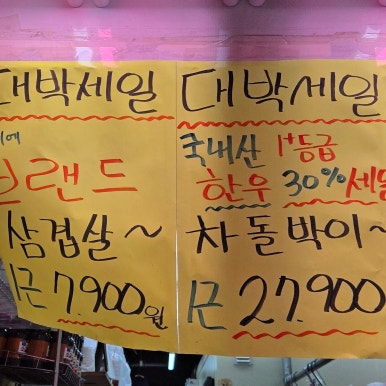 대박세일
브랜드
삼겹살~
1근 7.900원
대박세일
국내산 1+등급
한우 30%세일
차돌박이~
1근 27.900